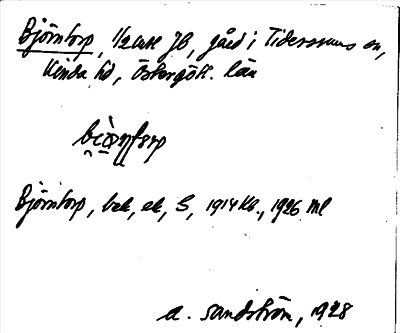 Björntorp, 1/2 mtl Jb, gård i Tidersrums sn,
Kinda hd, Östergötl. län
Björntorp, bek, ek, S, 1914 Kb., 1926 ml
A. Sandström, 1928